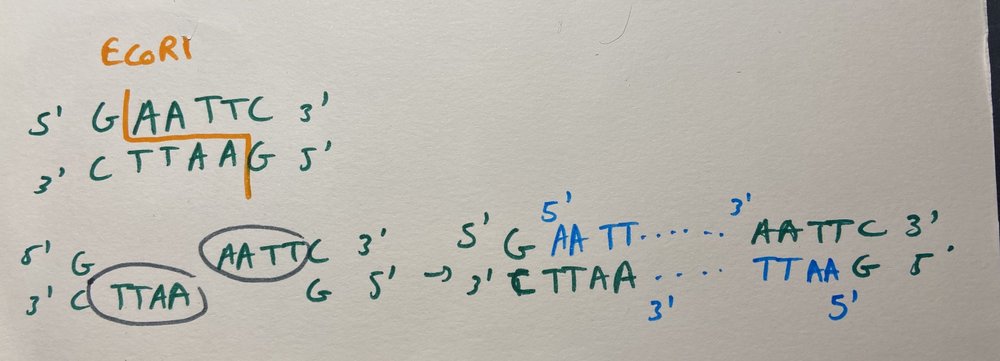 EcoRI
5' G AATTC 3'
3' C TTAAG 5'
5' G AATTC 3'
3' C TTAA G 5' →
5' 3'
5' G AATT...... AATTC 3'
3' C TTAA.... TTAAG 5'
3' 5'